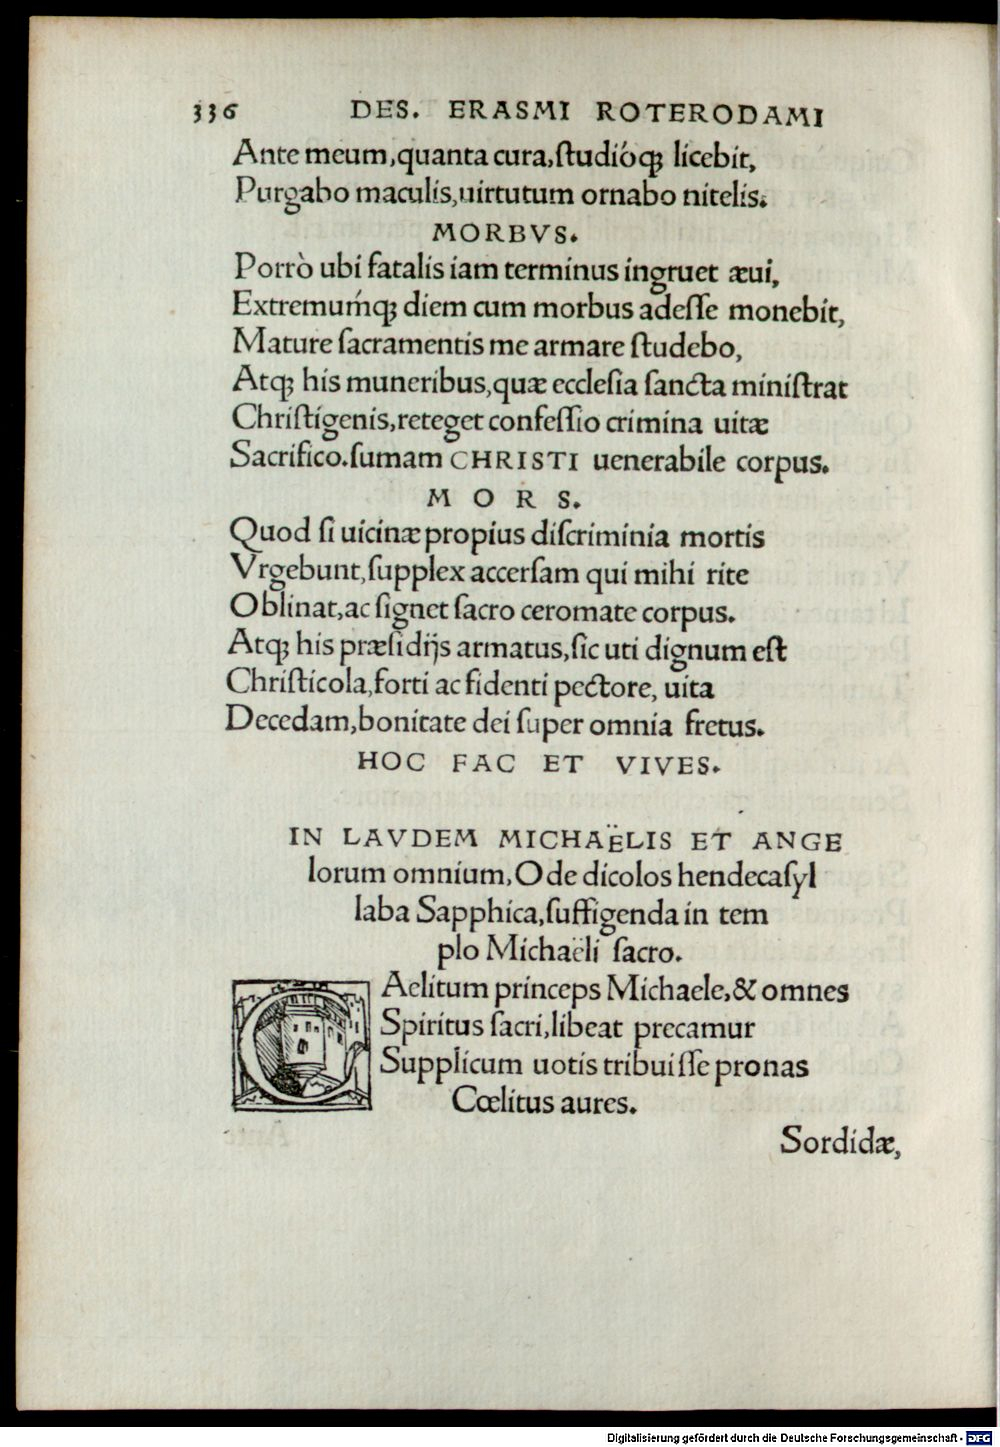 336 DES. ERASMI ROTERODAMI
Ante meum,quanta cura,ſtudióq; licebit,
Purgabo maculis,uirtutum ornabo nitelis.
MORBVS.
Porrò ubi fatalis iam terminus ingruet æui,
Extremuḿq; diem cum morbus adeſſe monebit,
Mature ſacramentis me armare ſtudebo,
Atq; his muneribus,quæ eccleſia ſancta miniſtrat
Chriſtigenis,reteget confeſſio crimina uitæ
Sacrifico.ſumam CHRISTI uenerabile corpus.
M O R S.
Quod ſi uicinæ propius diſcriminia mortis
Vrgebunt,ſupplex accerſam qui mihi rite
Oblinat,ac ſignet ſacro ceromate corpus.
Atq; his præſidijs armatus,ſic uti dignum eſt
Chriſticola,forti ac fidenti pectore, uita
Decedam,bonitate dei ſuper omnia fretus.
HOC FAC ET VIVES.
IN LAVDEM MICHAËLIS ET ANGE
lorum omnium,Ode dicolos hendecaſyl
laba Sapphica,ſuffigenda in tem
plo Michaëli ſacro.
CAelitum princeps Michaele,& omnes
Spiritus ſacri,libeat precamur
Supplicum uotis tribuiſſe pronas
Cœlitus aures.
Sordidæ,
Digitalisierung gefördert durch die Deutsche Forschungsgemeinschaft - DFG